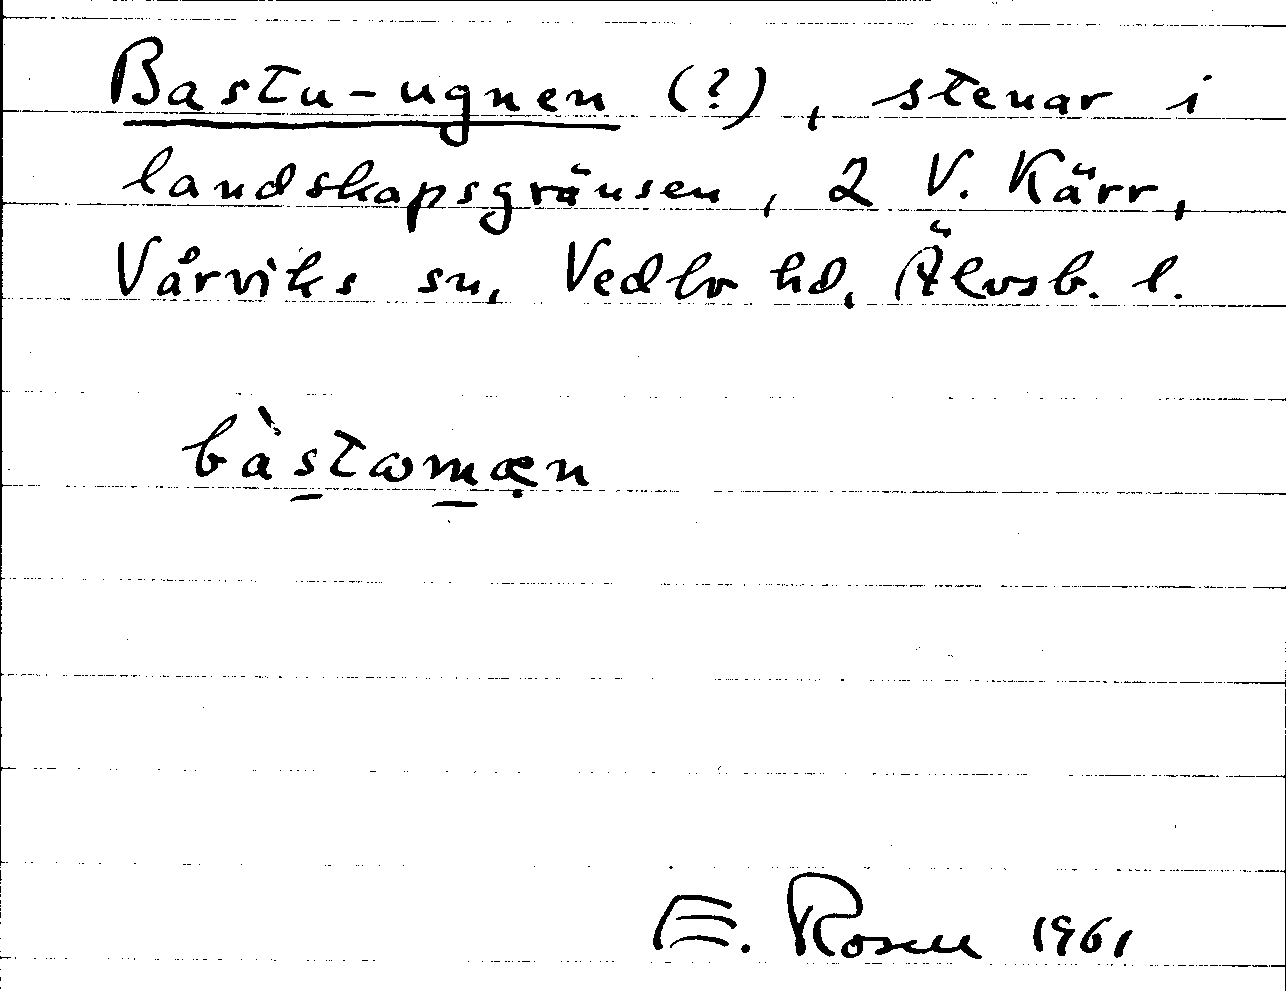 Bastu-ugnen (?), stenar i
landskapsgränsen, 2 V. Kärr,
Vårviks sn, Vedbo hd, Älvsb. l.
bàstωmæn
E. Rosell 1961